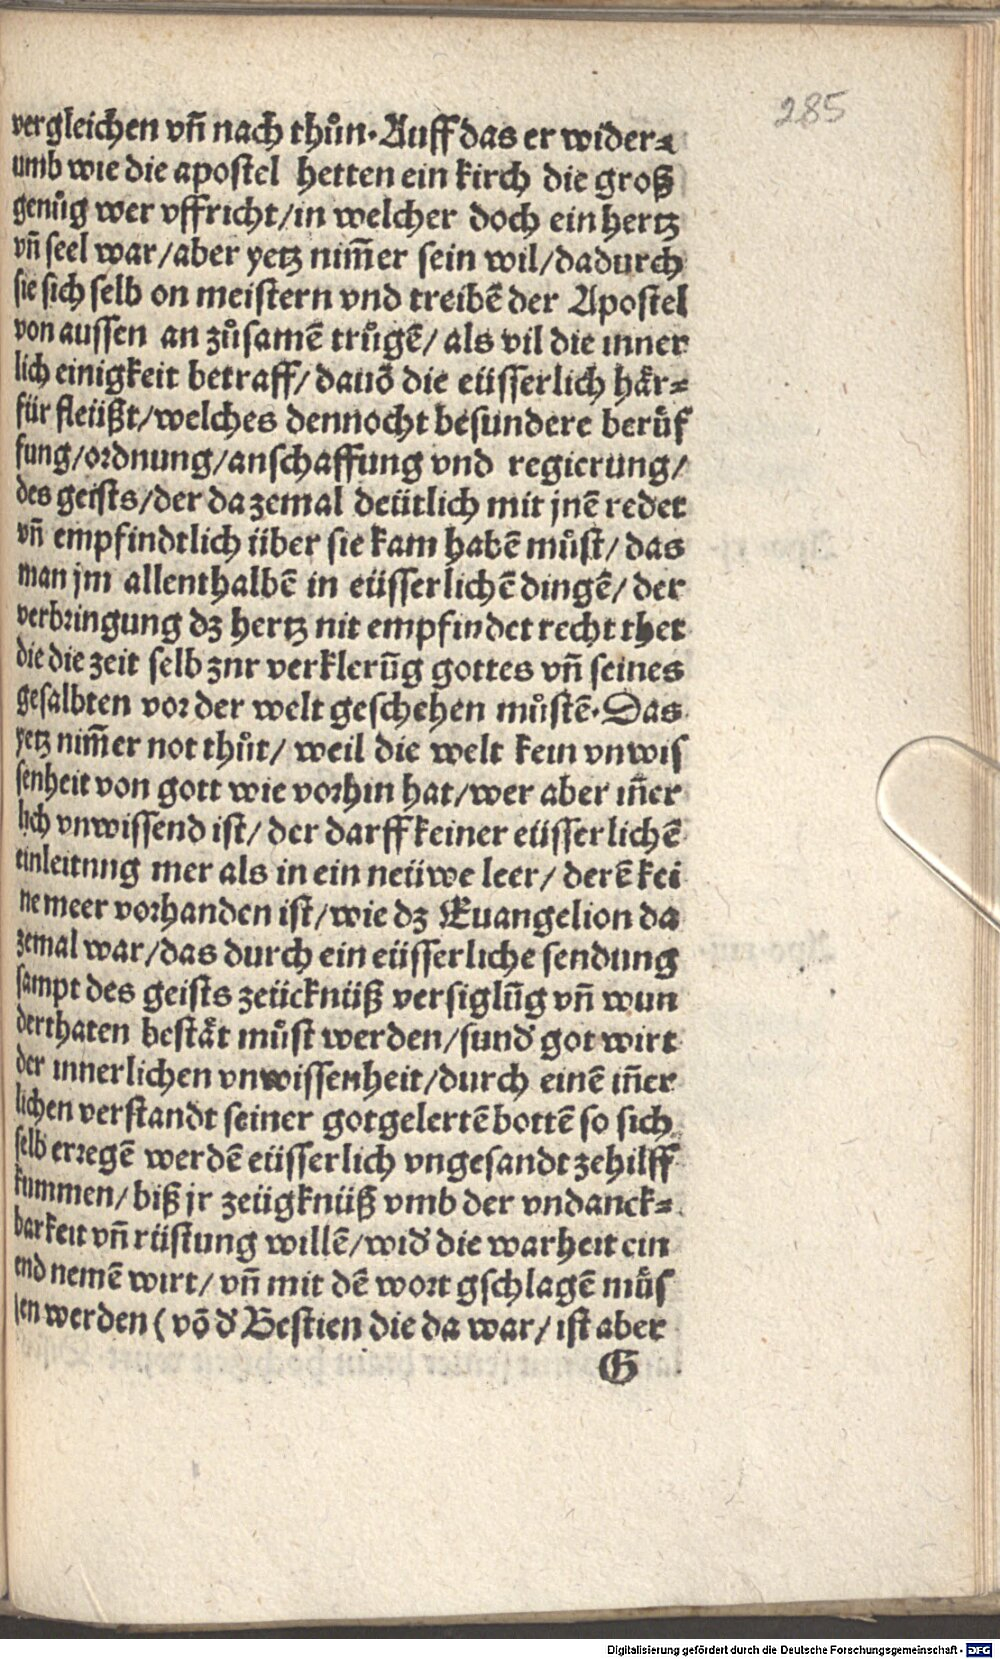 285
vergleichen vñ nach thůn. Auff das er wider⸗
umb wie die apostel hetten ein kirch die groß
genůg wer vffricht/in welcher doch ein hertz
vñ seel war/aber yetz nim̃er sein wil/dadurch
sie sich selb on meistern vnd treibẽ der Apostel
von aussen an zůsamẽ trůgẽ/ als vil die inner
lich einigkeit betraff/dauõ die eüsserlich här⸗
für fleüßt/welches dennocht besundere berůf
fung/ordnung/anschaffung vnd regierung/
des geists/der da zemal deütlich mit jnẽ redet
vñ empfindtlich über sie kam habẽ můst/das
man jm allenthalbẽ in eüsserlichẽ dingẽ/ der
verbringung dz hertz nit empfindet recht thet
die die zeit selb znr verklerũg gottes vñ seines
gesalbten vor der welt geschehen můstẽ. Das
yetz nim̃er not thůt/ weil die welt kein vnwis
senheit von gott wie vorhin hat/wer aber iñer
lich vnwissend ist/ der darff keiner eüsserlichẽ
einleitnng mer als in ein neüwe leer/ derẽ kei
ne meer vorhanden ist/wie dz Euangelion da
zemal war/das durch ein eüsserliche sendung
sampt des geists zeücknüß versiglũg vñ wun
derthaten bestät můst werden/sund̕ got wirt
der innerlichen vnwissenheit/durch einẽ iñer
lichen verstandt seiner gotgelertẽ bottẽ so sich
selb erregẽ werdẽ eüsserlich vngesandt zehilff
kummen/biß jr zeügknüß vmb der vndanck⸗
barkeit vñ rüstung willẽ/wid̕ die warheit ein
end nemẽ wirt/ vñ mit dẽ wort gschlagẽ můs
sen werden (võ d̕ Bestien die da war/ ist aber
G
Digitalisierung gefördert durch die Deutsche Forschungsgemeinschaft - DFG